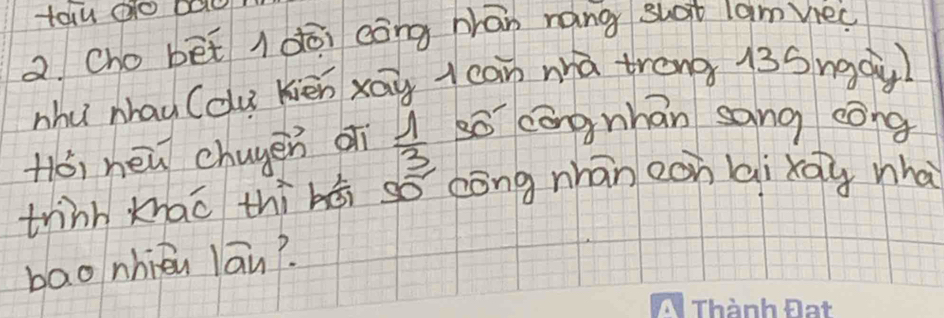 2. Cho bết 1 đội công nhân năng suất làm việc
như nhau (dự kiến xây 1 căn nhà trong 135 ngày)
Hỏi nếu chuyển đi 1/3 số công nhân sang công
trình khác thì hỏi số công nhân còn lại xây nhà
bao nhiêu lâu?
Thành Đạt